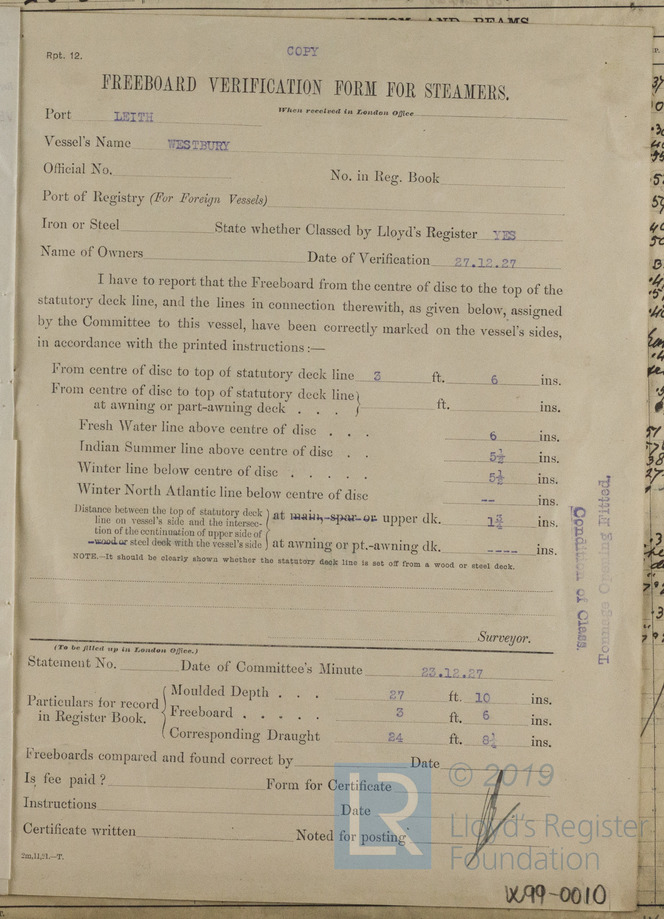 BOTTOM AND BEAMS
Rpt. 12.
COPY
FREEBOARD VERIFICATION FORM FOR STEAMERS.
Port LEITH When received in London Office
Vessel's Name WESTBURY
Official No. No. in Reg. Book
Port of Registry (For Foreign Vessels)
Iron or Steel State whether Classed by Lloyd's Register YES
Name of Owners Date of Verification 27.12.27
I have to report that the Freeboard from the centre of disc to the top of the
statutory deck line, and the lines in connection therewith, as given below, assigned
by the Committee to this vessel, have been correctly marked on the vessel's sides,
in accordance with the printed instructions :—
From centre of disc to top of statutory deck line 3 ft. 6 ins.
From centre of disc to top of statutory deck line
at awning or part-awning deck . . . ft. ins.
Fresh Water line above centre of disc . . . 6 ins.
Indian Summer line above centre of disc . . 5½ ins.
Winter line below centre of disc . . . . . 5½ ins.
Winter North Atlantic line below centre of disc -- ins.
Distance between the top of statutory deck
line on vessel's side and the intersec-
tion of the continuation of upper side of
wood or steel deck with the vessel's side
at main, spar or upper dk. 1¾ ins.
at awning or pt.-awning dk. ---- ins.
NOTE.—It should be clearly shown whether the statutory deck line is set off from a wood or steel deck.
Condition of Class.
Tonnage Opening Fitted.
Surveyor.
(To be filled up in London Office.)
Statement No. Date of Committee's Minute 23.12.27
Particulars for record
in Register Book.
Moulded Depth . . . 27 ft. 10 ins.
Freeboard . . . . . 3 ft. 6 ins.
Corresponding Draught 24 ft. 8½ ins.
Freeboards compared and found correct by Date
Is fee paid ? Form for Certificate
Instructions Date
Certificate written Noted for posting
2m,11,21.—T.
LR
© 2019
Lloyd's Register
Foundation
W99-0010